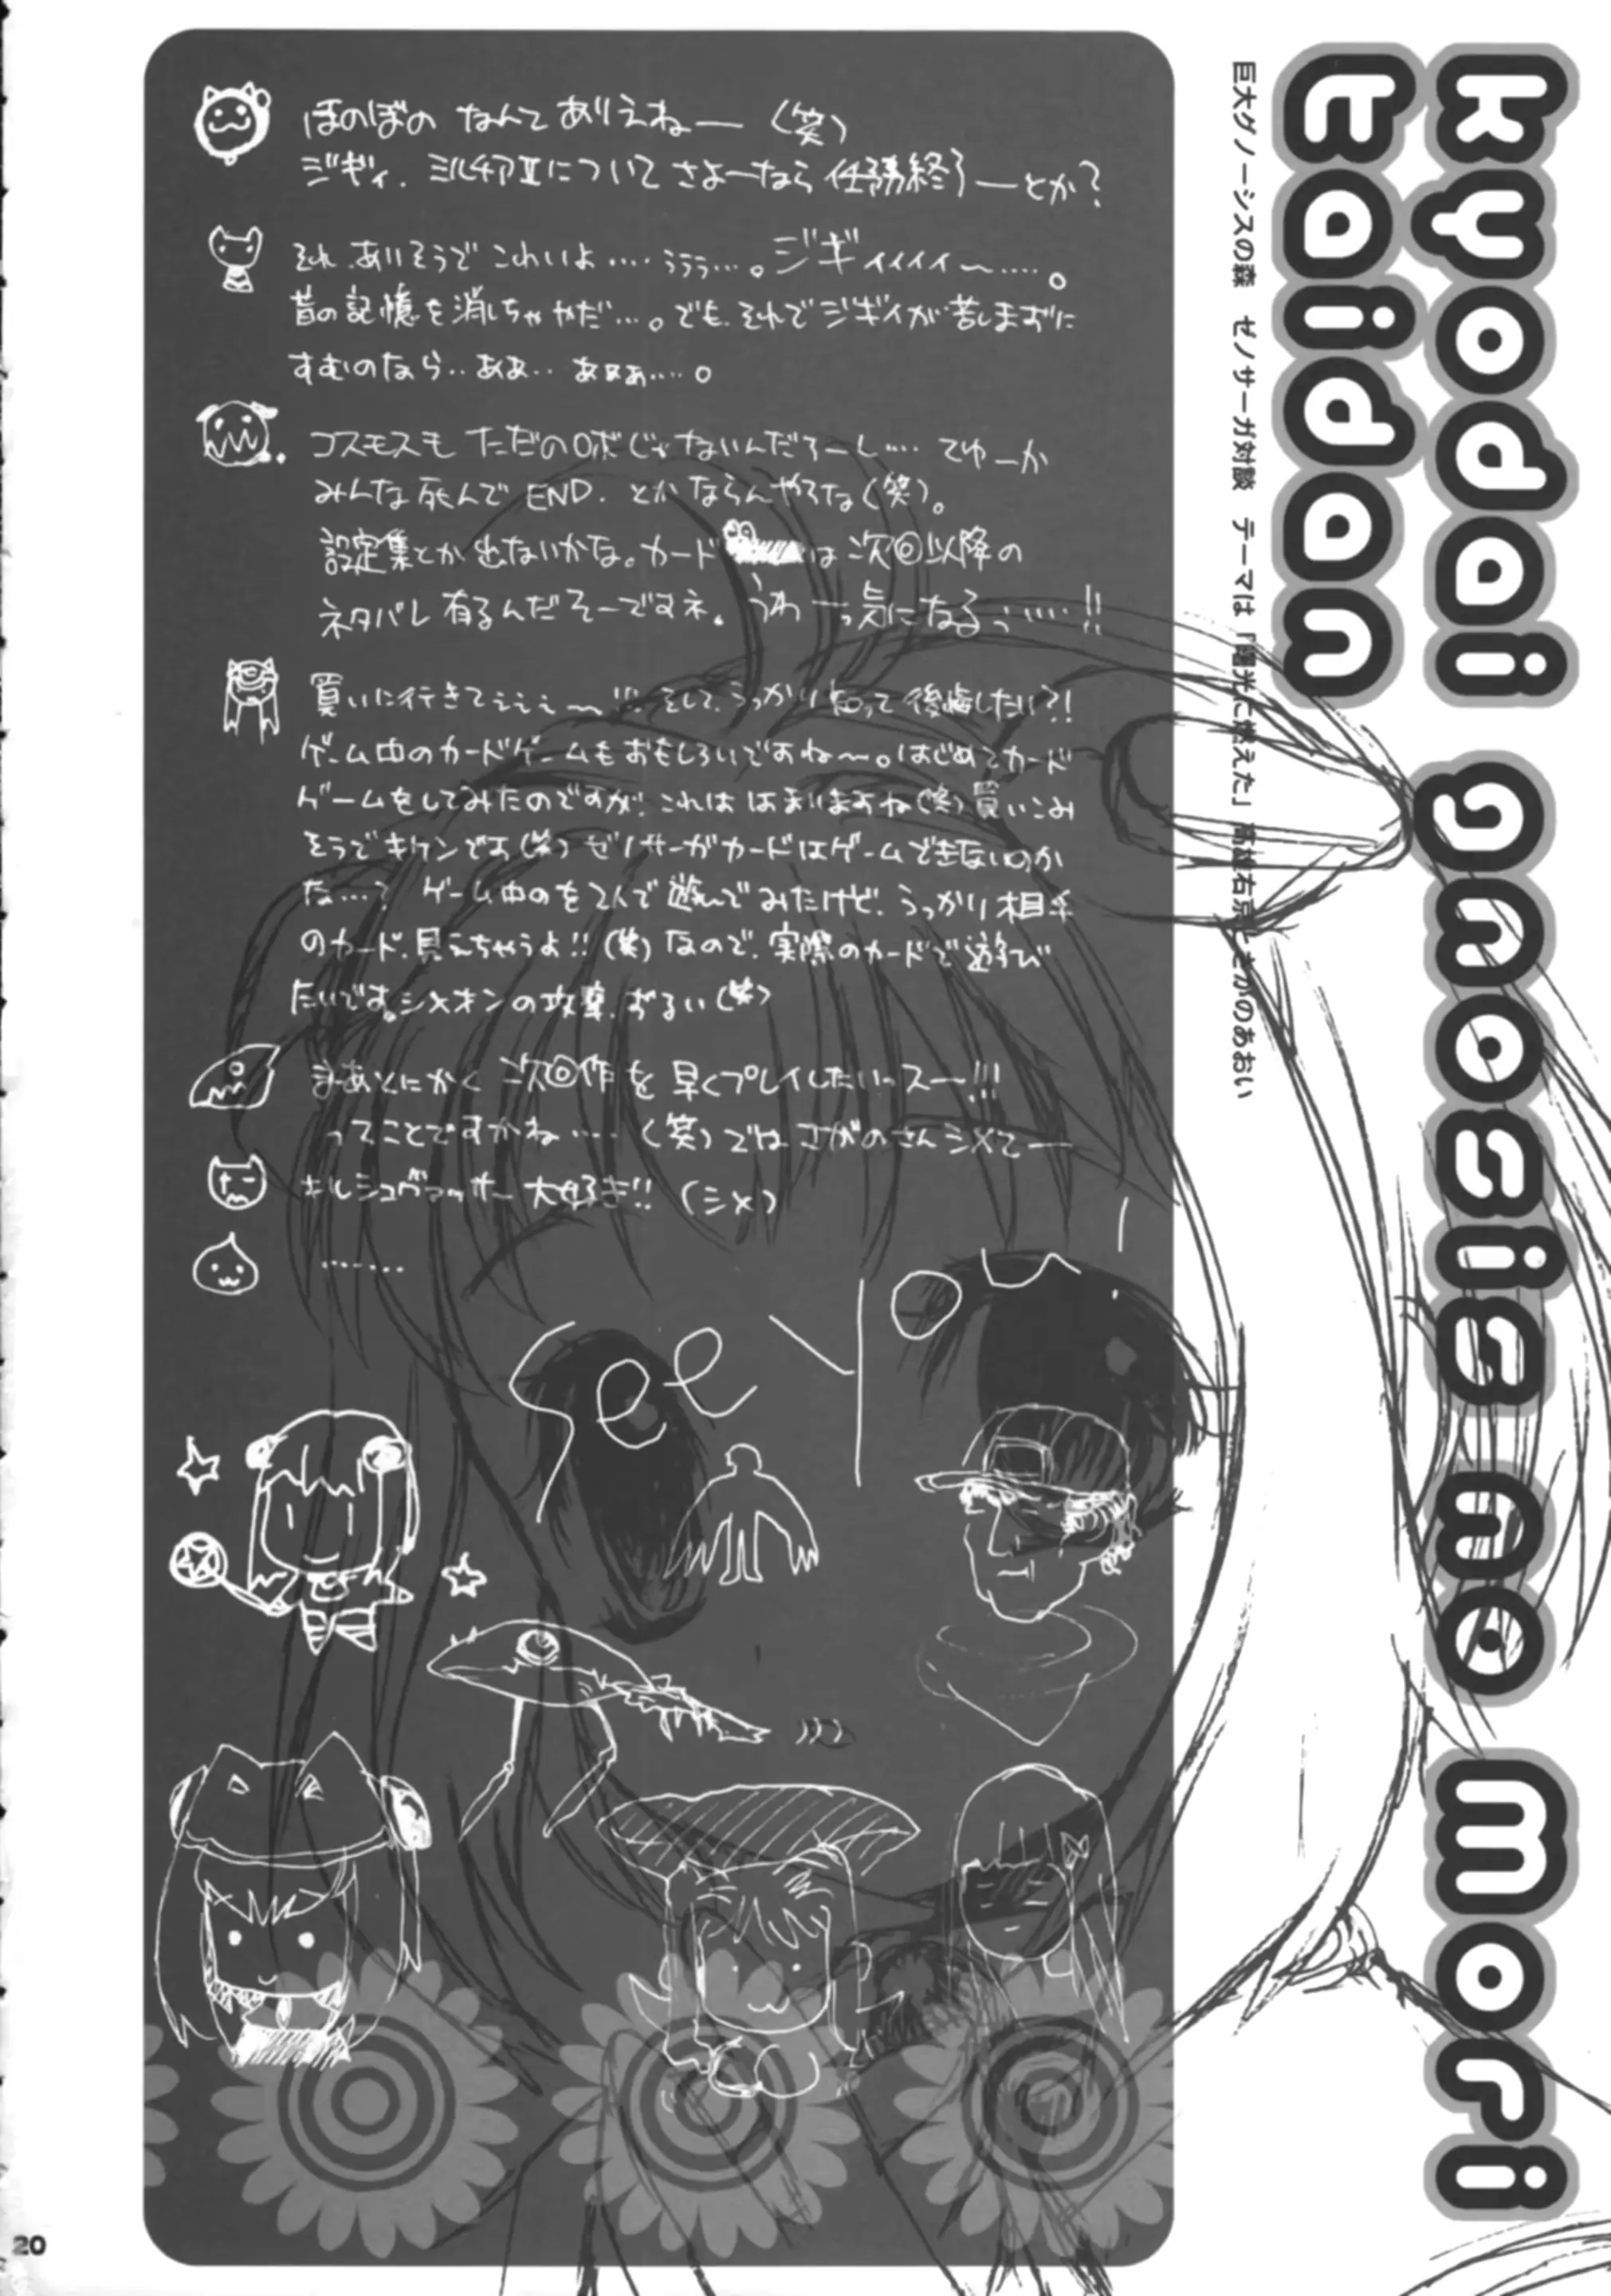 kyodai gnosis no mori
taidan
巨大グノーシスの森 ゼノサーガ対談 テーマは「曙光に燃えた」高雄右京とさがのあおい
ほのぼの なんて ありえねー (笑)
ジギィ. ミルチアⅡについて さよーなら 任務終了ーとか?
それ.ありそうで こわいよ‥‥ううう‥‥。ジギィィィィ〜‥‥。
昔の記憶を消しちゃやだ‥‥。でも.それでジギィが苦しまずに
すむのなら‥ああ‥ あぁぁ‥‥。
コスモスも ただのロボじゃないんだろーし‥‥ てゆーか
みんな死んで END. とかならんやろな(笑)。
設定集とか出ないかな。カード は 次回以降の
ネタバレ有るんだそーですネ。うわーっ気になるっ‥‥!!
買いに行きてぇぇぇ〜!!! そして.うっかり知って後悔したい?!
ゲーム中のカードゲームもおもしろいですね〜。はじめてカード
ゲームをしてみたのですが.これは はまりますね(笑)買いこみ
そうでキケンです(笑)ゼノサーガカードはゲームできないのか
な‥‥? ゲーム中のを2人で遊んでみたけど.うっかり相手
のカード.見えちゃうよ!!(笑)なので.実際のカードで遊び
たいです。シメオンの攻撃.ずるい(笑)
まあとにかく 次回作を 早くプレイしたいっスー!!!
ってことですかね‥‥(笑)では さがのさんシメてー
ギルシュヴァッサー 大好き!! (シメ)
‥‥‥
see you!
20